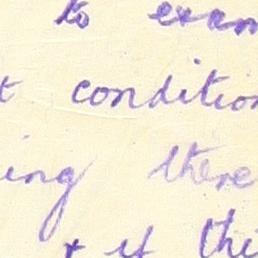 to exam
t condition
ing there
+ if thi